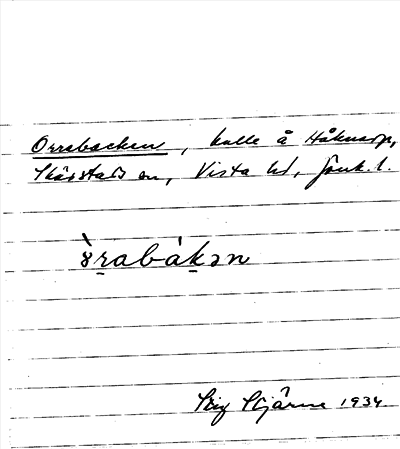 Orrabacken, kulle å Håknarp,
Skärstads sn, Vista hd, Jönk. l.
ɤ̀r̠abák̠ən
Stig Stjärne 1934